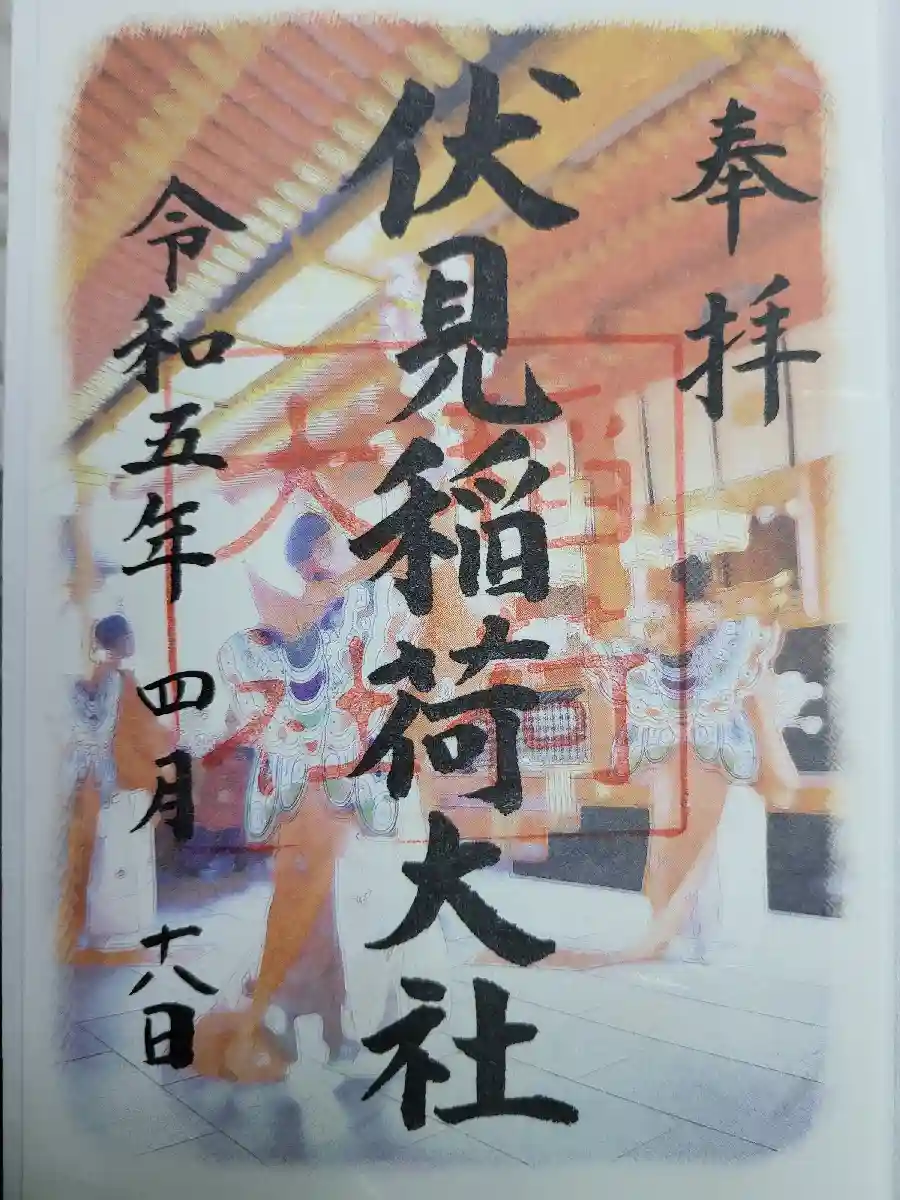 奉拝
伏見稲荷大社
令和五年四月十八日